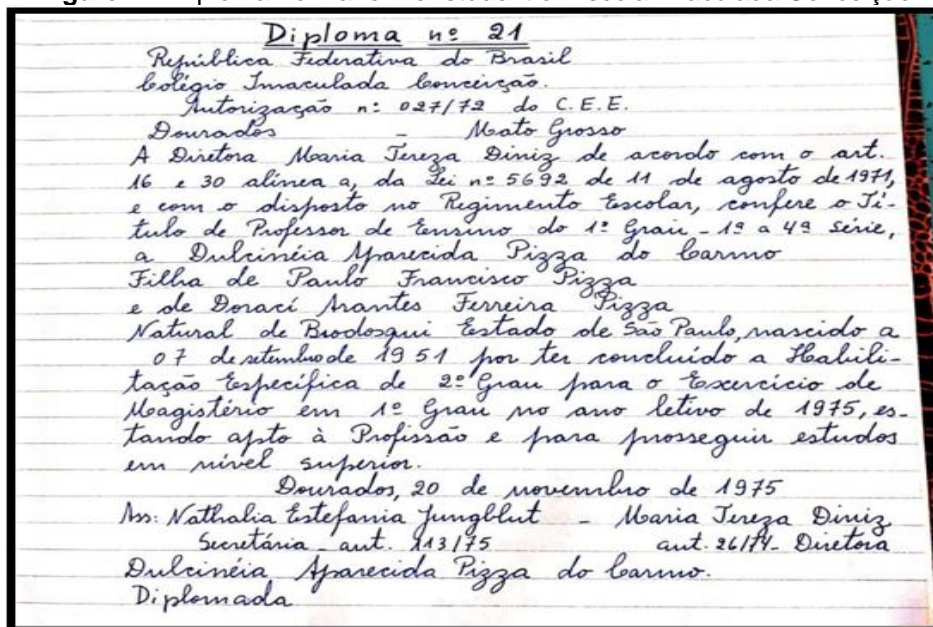 Diploma nº 21
República Federativa do Brasil
Colégio Imaculada Conceição.
Autorização nº 027/72 do C.E.E.
Dourados - Mato Grosso
A Diretora Maria Tereza Diniz de acordo com o art.
16 e 30 alínea a, da Lei nº 5692 de 11 de agosto de 1971,
e com o disposto no Regimento Escolar, confere o Tí-
tulo de Professor de Ensino do 1º Grau - 1ª a 4ª série,
a Dulcinéia Aparecida Pizza do Carmo
Filha de Paulo Francisco Pizza
e de Doraci Arantes Ferreira Pizza
Natural de Brodosqui Estado de São Paulo, nascido a
07 de setembro de 1951 por ter concluído a Habili-
tação Específica de 2º Grau para o Exercício de
Magistério em 1º Grau no ano letivo de 1975, es-
tando apto à Profissão e para prosseguir estudos
em nível superior.
Dourados, 20 de novembro de 1975
Ass: Nathalia Estefania Jungblut - Maria Tereza Diniz
Secretária - aut. 113/75 aut. Diretora
Dulcinéia Aparecida Pizza do Carmo.
Diplomada